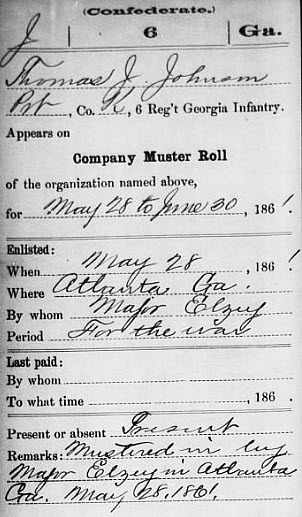 (Confederate.)
J | 6 | Ga.
Thomas J. Johnson
Pvt, Co. K, 6 Reg't Georgia Infantry.
Appears on
Company Muster Roll
of the organization named above,
for May 28 to June 30, 1861.
Enlisted:
When May 28, 1861
Where Atlanta Ga.
By whom Major Elzey
Period For the war
Last paid:
By whom
To what time , 186 .
Present or absent Present
Remarks: Mustered in by
Major Elzey in Atlanta
Ga. May 28, 1861.